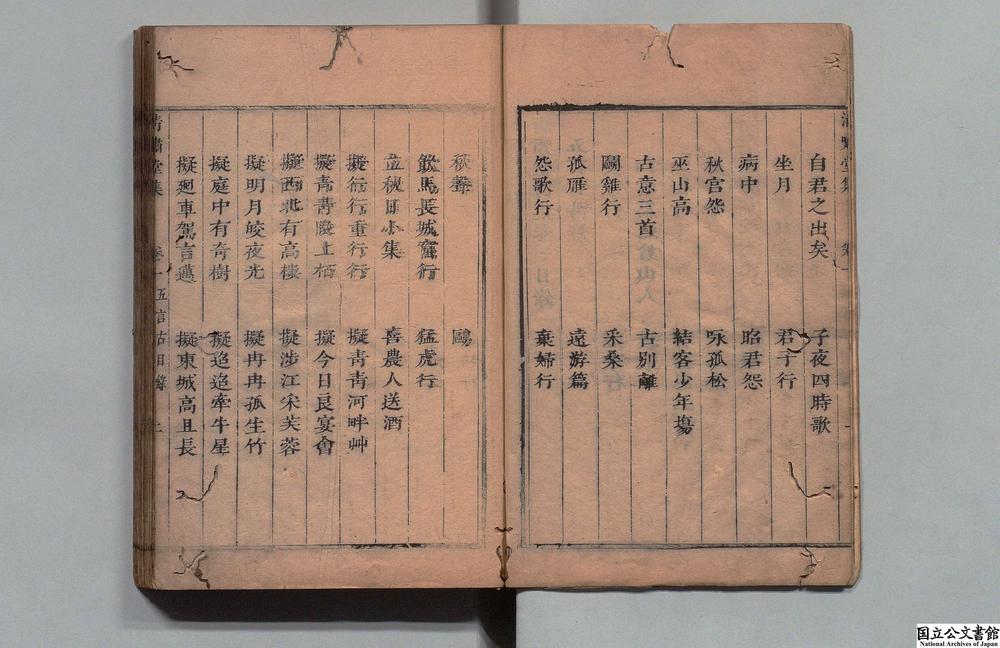 自君之出矣　子夜四時歌
坐月　君子行
病中　昭君怨
秋宮怨　咏孤松
巫山高　結客少年場
古意三首　古別離
鬭雞行　采桑
孤雁　遠游篇
怨歌行　棄婦行
秋
鷗
飲馬長城窟行　猛虎行
立秋日小集　喜農人送酒
擬行行重行行　擬青青河畔艸
擬青青陵上栢　擬今日良宴會
擬西北有高樓　擬涉江采芙蓉
擬明月皎夜光　擬冉冉孤生竹
擬庭中有奇樹　擬迢迢牽牛星
擬廻車駕言邁　擬東城高且長
堂集　卷一　五言古目錄　上
国立公文書館
National Archives of Japan